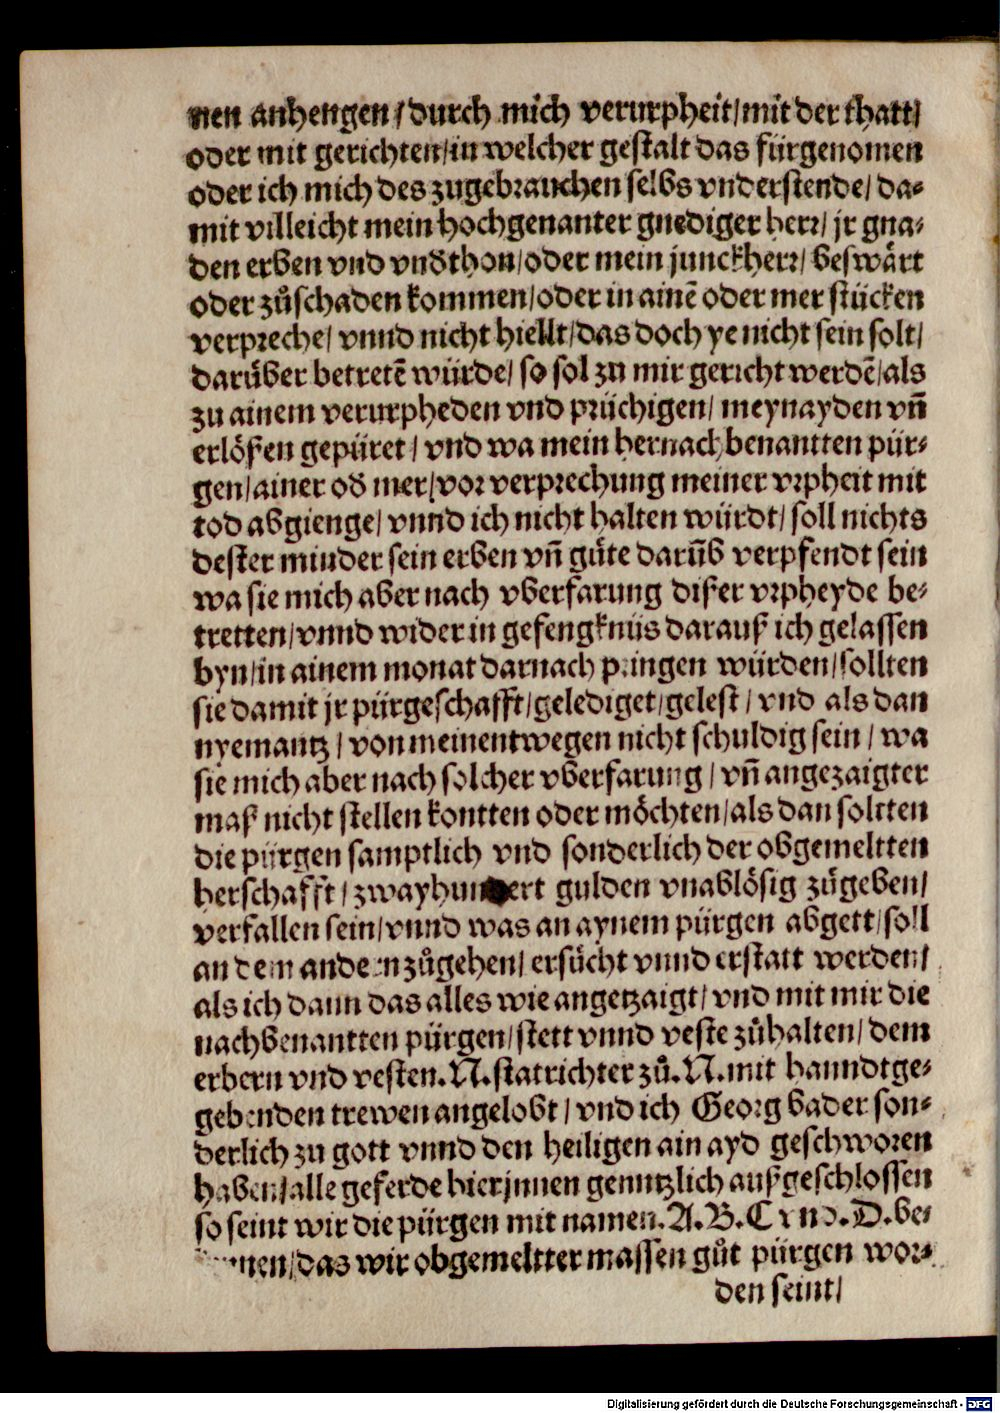 nen anhengen/durch mich verurpheit/mit der thatt/
oder mit gerichten/in welcher gestalt das fürgenomen
oder ich mich des zugebrauchen selbs vnderstende/da-
mit villeicht mein hochgenanter gnediger herr/jr gna-
den erben vnd vnd̕thon/oder mein junckherr/beswårt
oder zůschaden kommen/oder in ainē oder mer stücken
verpreche/vnnd nicht hiellt/das doch ye nicht sein solt/
darüber betretē würde/so sol zu mir gericht werdē/als
zu ainem verurpheden vnd prüchigen/meynayden vn̄
erlößen gepüret/vnd wa mein hernachbenantten pür-
gen/ainer od̕ mer/vor verprechung meiner vrpheit mit
tod abgienge/vnnd ich nicht halten würdt/soll nichts
dester minder sein erben vn̄ gůte darūb verpfendt sein
wa sie mich aber nach vberfarung dißer vrpheyde be-
tretten/vnnd wider in gefengknüs darauß ich gelassen
byn/in ainem monat darnach pringen würden/sollten
sie damit jr pürgeschafft/gelediget/gelest/vnd als dan
nyemantz/von meinentwegen nicht schuldig sein/wa
sie mich aber nach solcher vberfarung/vn̄ angezaigter
maß nicht stellen kontten oder möchten/als dan soltten
die pürgen samptlich vnd sonderlich der obgemeltten
herschafft/zwayhundert gulden vnablösig zůgeben/
verfallen sein/vnnd was an aynem pürgen abgett/soll
an dem andern zůgehen/ersůcht vnnd erstatt werden/
als ich dann das alles wie angetzaigt/vnd mit mir die
nachbenantten pürgen/stett vnnd veste zůhalten/dem
erbern vnd vesten.N.statrichter zů.N.mit hanndtge-
gebenden trewen angelobt/vnd ich Georg bader son-
derlich zu gott vnnd den heiligen ain ayd geschworen
haben/alle geferde hierjnnen genntzlich außgeschlossen
so seint wir die pürgen mit namen.A.B.C vnd.D.be-
nnen/das wir obgemeltter massen gůt pürgen wor-
den seint/
Digitalisierung gefördert durch die Deutsche Forschungsgemeinschaft - DFG